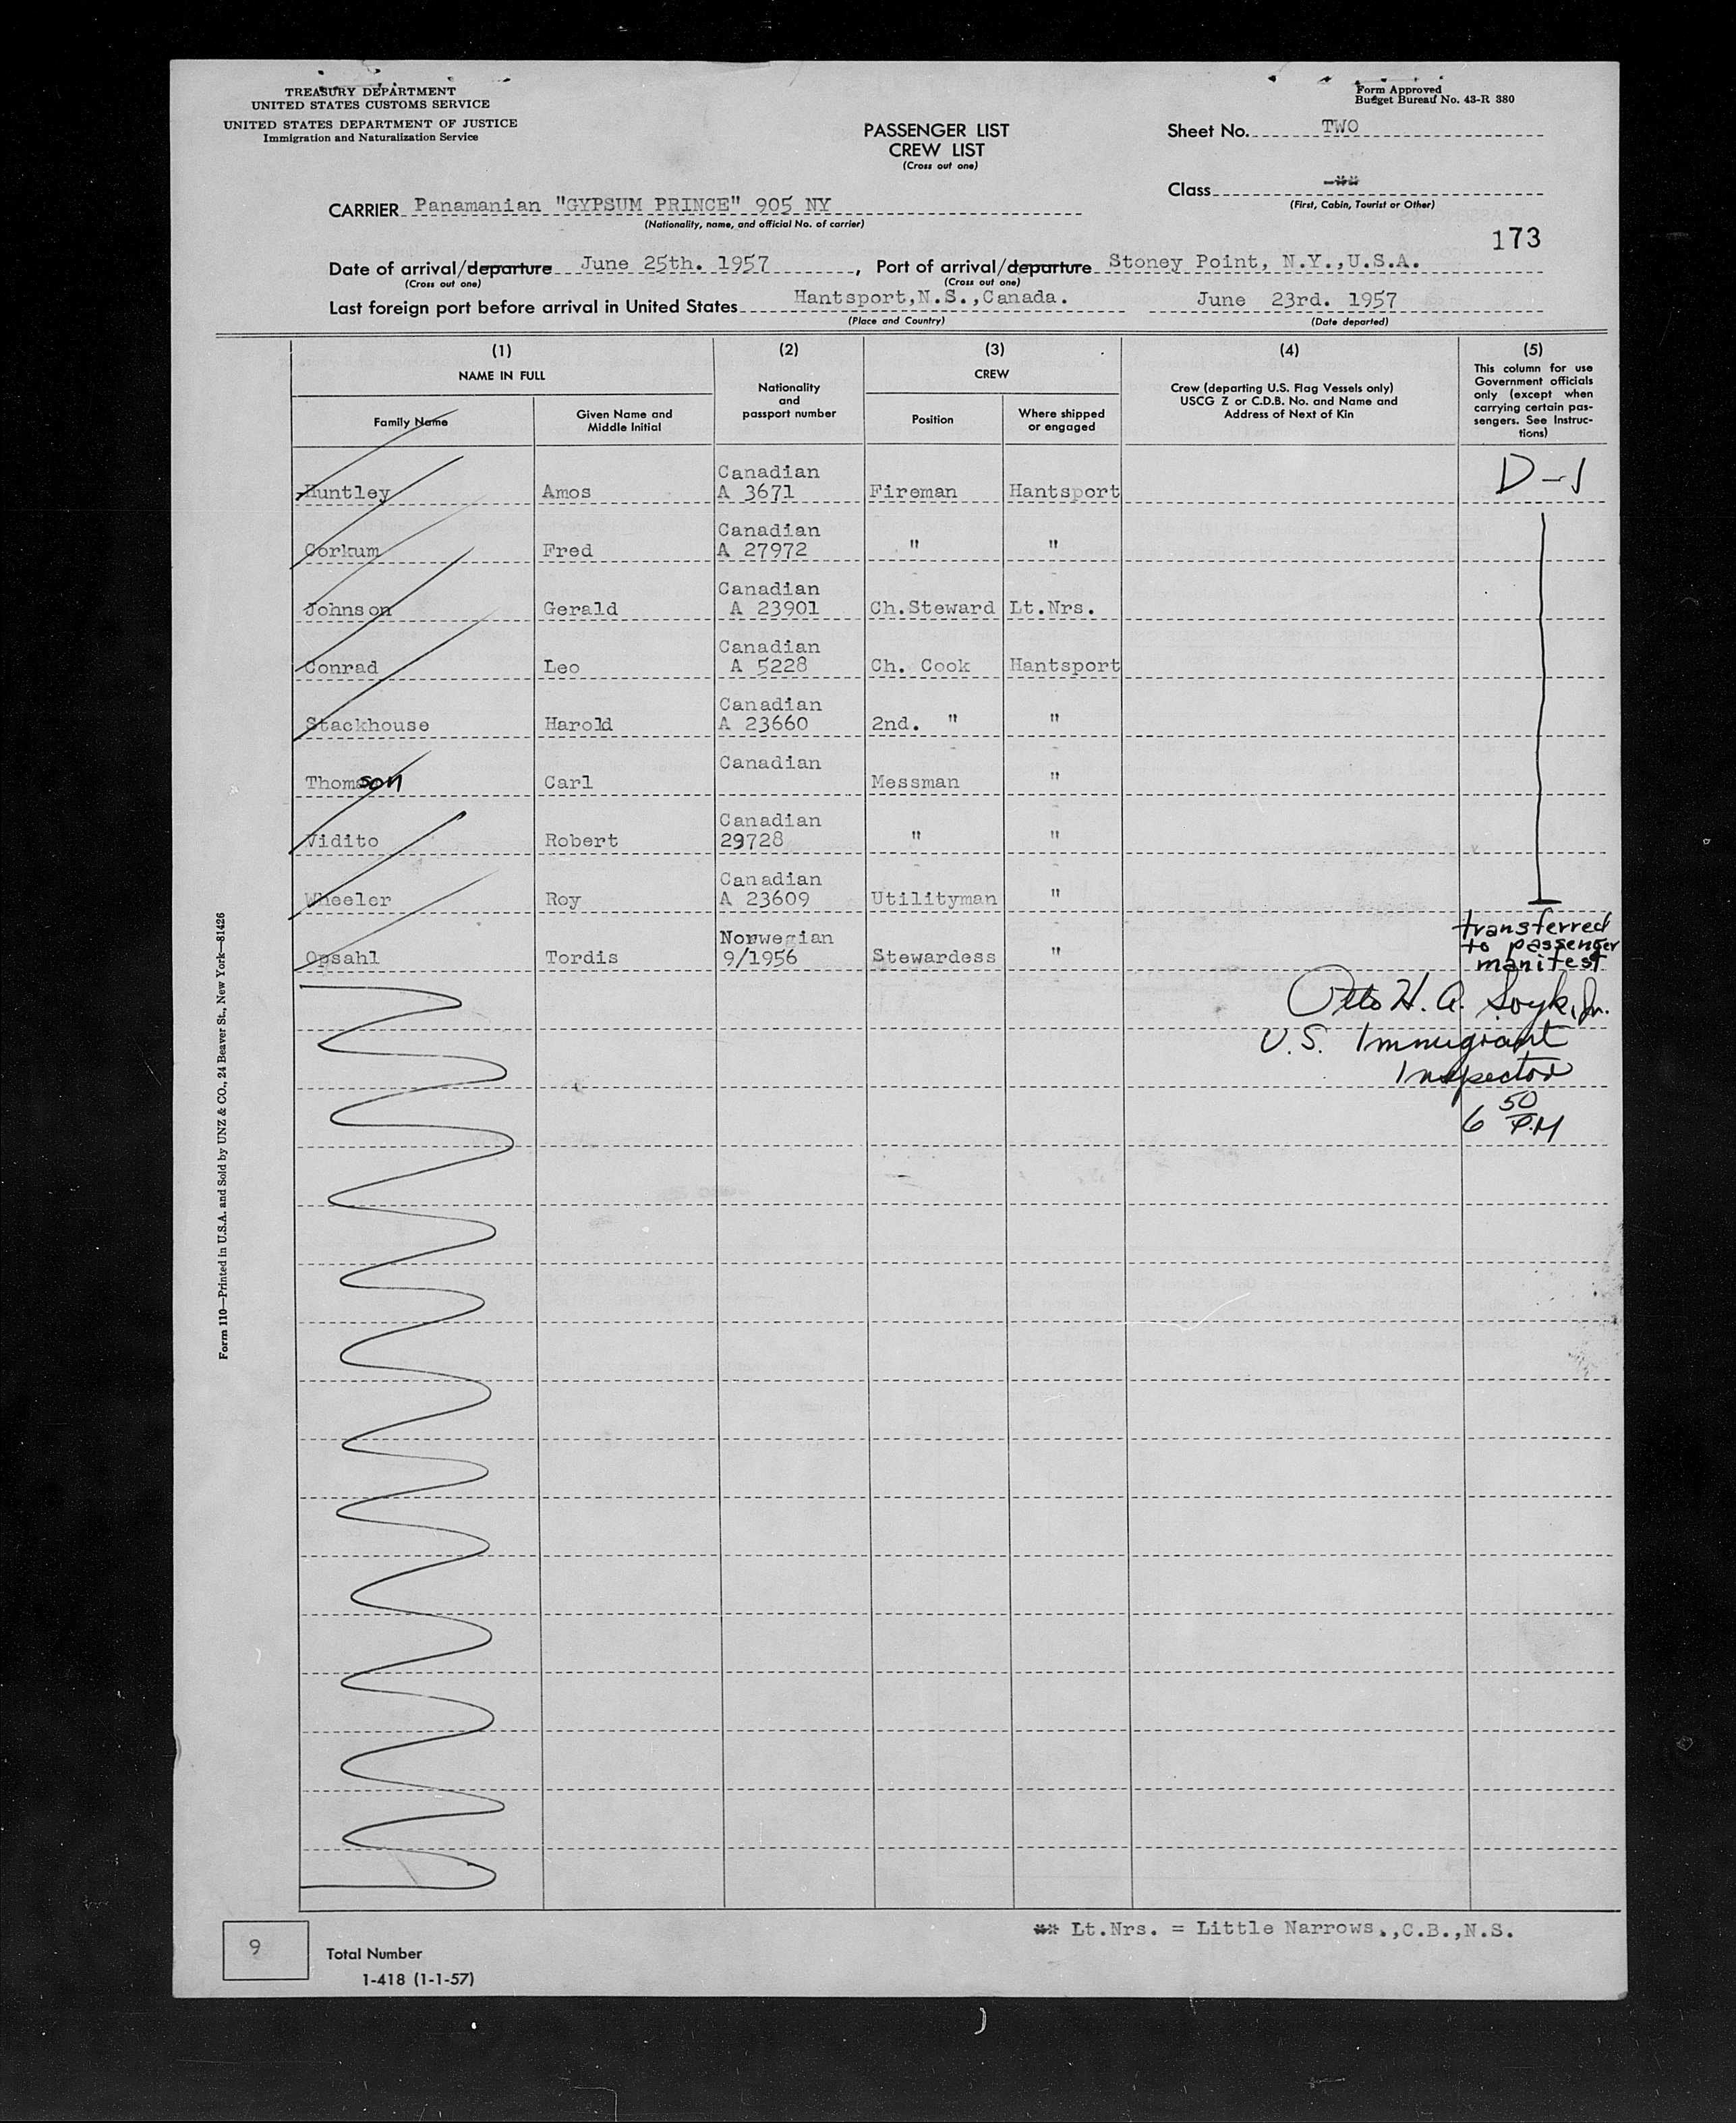 TREASURY DEPARTMENT
UNITED STATES CUSTOMS SERVICE
UNITED STATES DEPARTMENT OF JUSTICE
Immigration and Naturalization Service
Form Approved
Budget Bureau No. 43-R 380
PASSENGER LIST
CREW LIST
(Cross out one)
Sheet No. TWO
Class -**
(First, Cabin, Tourist or Other)
CARRIER Panamanian "GYPSUM PRINCE" 905 NY
(Nationality, name, and official No. of carrier)
173
Date of arrival/departure June 25th. 1957, Port of arrival/departure Stoney Point, N.Y.,U.S.A.
(Cross out one) (Cross out one)
Last foreign port before arrival in United States Hantsport,N.S.,Canada. June 23rd. 1957
(Place and Country) (Date departed)
(1) (2) (3) (4) (5)
NAME IN FULL
Family Name
Given Name and
Middle Initial
Nationality
and
passport number
CREW
Position
Where shipped
or engaged
Crew (departing U.S. Flag Vessels only)
USCG Z or C.D.B. No. and Name and
Address of Next of Kin
This column for use
Government officials
only (except when
carrying certain pas-
sengers. See Instruc-
tions)
Canadian D-1
Huntley Amos A 3671 Fireman Hantsport
Canadian
Corkum Fred A 27972 " "
Canadian
Johnson Gerald A 23901 Ch.Steward Lt.Nrs.
Canadian
Conrad Leo A 5228 Ch. Cook Hantsport
Canadian
Stackhouse Harold A 23660 2nd. " "
Canadian
Thomason Carl Messman "
Canadian
Vidito Robert 29728 " "
Canadian
Wheeler Roy A 23609 Utilityman "
Norwegian
Opsahl Tordis 9/1956 Stewardess "
transferred
to passenger
manifest
Otto H. A. Soyk, Jr.
U.S. Immigrant
Inspector
6 50 P.M
Form 110—Printed in U.S.A. and Sold by UNZ & CO., 24 Beaver St., New York—81426
** Lt.Nrs. = Little Narrows.,C.B.,N.S.
9
Total Number
1-418 (1-1-57)